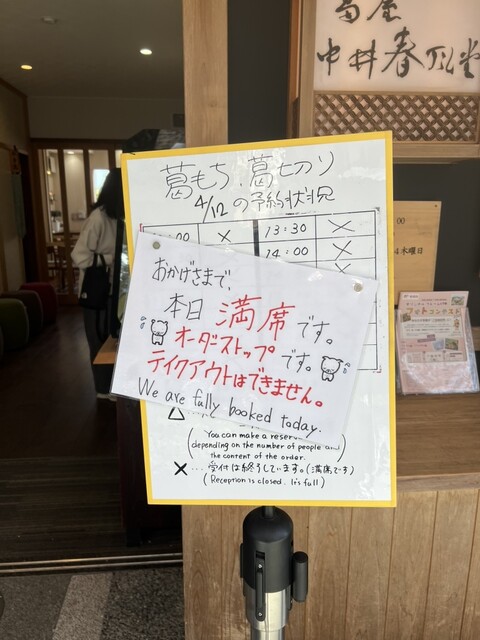 葛屋
中井春風堂
葛もち、葛切り
4/12の予約状況
00 × 13:30 ×
× 14:00 ×
00
木曜日
おかげさまで、
本日 満席です。
オーダーストップです。
テイクアウトはできません。
We are fully booked today.
△
(You can make a reser
depending on the number of people and
the content of the order.)
×…受付は終了しています。(満席です)
(Reception is closed. It's full)